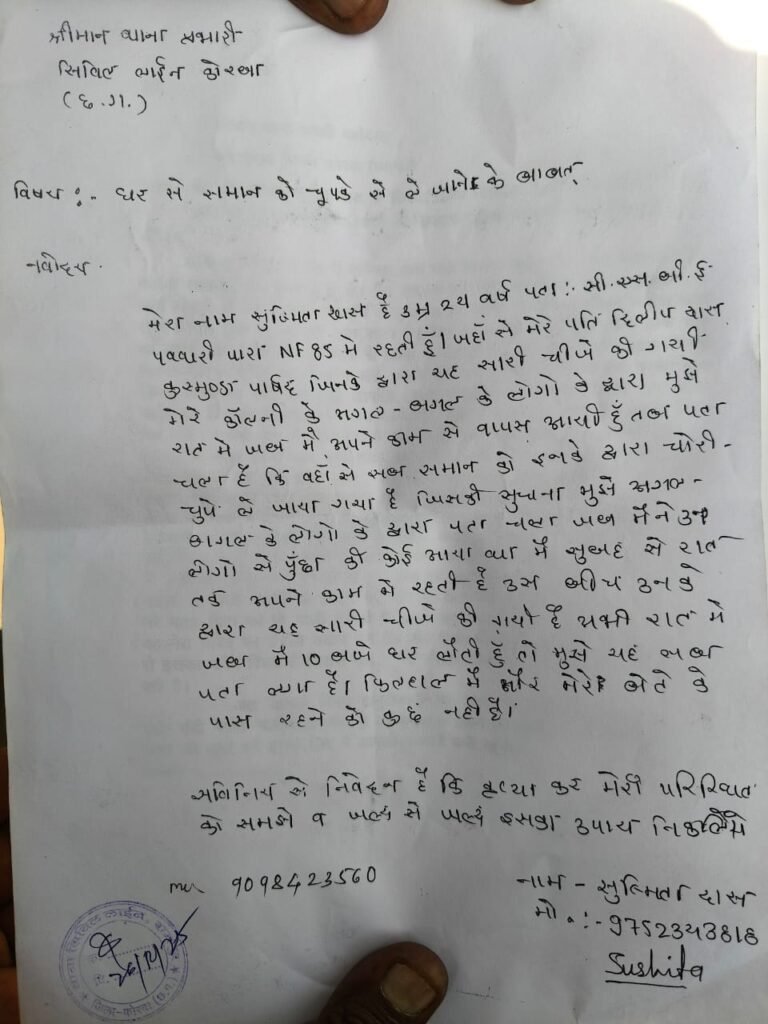 श्रीमान थाना प्रभारी
सिविल लाईन कोरबा
(छ.ग.)
विषय :- घर से समान को चूपके से ले जाने के बाबत्
मेरा नाम सुष्मिता दास है उम्र 24 वर्ष पता :. सी.एस.ई.बी
NF 85 मे रहती हूँ। जहाँ से मेरे पति दिलीप दास
जिनके द्वारा यह सारी चीजे की गयी
मेरे कॉलनी के अगल-बगल के लोगो के द्वारा मुझे
रात मे जब मै अपने काम से वापस आयी हूँ तब पता
चला है कि वहाँ से सब समान को इनके द्वारा चोरी-
चुपे ले जाया गया है जिसकी सुचना मुझे अगल-
बागल के लोगो के द्वारा पता चला जब मैने उन
लोगो से पुँछा की कोई आया था मै सुबह से रात
तक अपने काम मे रहती है उस बीच उनके
द्वारा यह सारी चीजे की गयी है रात मे
जब मै 10 बजे घर लौती हूँ तो मुझे यह सब
पता लगा है। फिलहाल मै और मेरे बेटे के
पास रहने को कुछ नही है।
सविनिय से निवेदन है कि कृप्या कर मेरी
को समझे व जल्द से जल्द इसका उपाय
9098423560
नाम - सुष्मिता दास
मो. :- 9752343818
Sushita
26/12/25